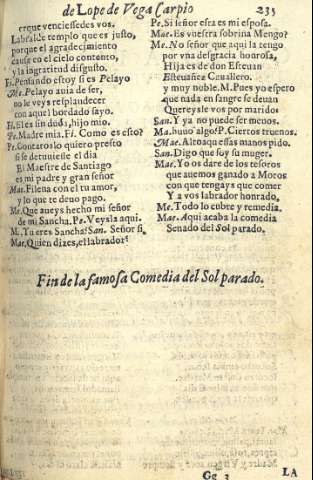 de Lope de Vega Carpio 235
erque venciessedes vos.
Labralde templo que es justo,
porque el agradecimiento
causa en el cielo contento,
y la ingratitud disgusto.
Fi. Pensando estoy si es Pelayo
Me. Pelayo auia de ser,
no le veys resplandecer
con aquel bordado sayo.
Fi. El es sin duda, hijo mio.
Pe. Madre mia. Fi. Como es esto?
Pe. Contaros lo quiero presto
si se detuuiesse el dia
El Maestre de Santiago
es mi padre y gran señor
Mae. Filena con el tu amor,
y lo que te deuo pago.
Me. Que aueys hecho mi señor
de mi Sancha. Pe. Veysla aqui.
M. Tu eres Sancha? San. Señor si,
Mae. Quien dizes, el labrador?
Pe. Si señor esta es mi esposa.
Mae. Es vuestra sobrina Mengo?
Me. No señor que aqui la tengo
por vna desgracia honrosa,
Hija es de don Esteuan
Esteuañez Cauallero.
y muy noble. M. Pues yo espero
que nada en sangre se deuan
Quereysle vos por marido?
San. Y ya no puede ser menos.
Ma. huuo algo? P. Ciertos truenos.
Mae. Alto aqui essas manos pido.
San. Digo que soy su muger.
Mae. Y o os dare de los tesoros
que auemos ganado a Moros
con que tengays que comer
Y a vos labrador honrado,
Me. Todo lo cubre y remedia.
Mae. Aqui acaba la comedia
Senado del Sol parado.
Fin de la famosa Comedia del Sol parado.
Gg 3 LA